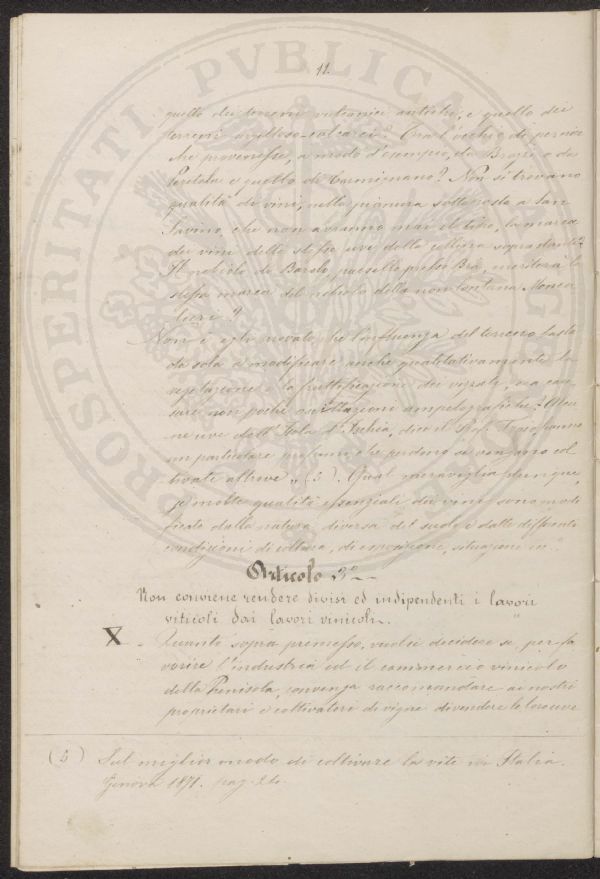 11.
quello dei terreni vulcanici antichi, e quello dei
terreni argilloso-calcarei? Ora l'
che provenisse, a modo d'esempio, da Brozzi o da
Peretola e quello di Carmignano? Non si trovano
qualità di vini, nella pianura sottoposta a San
Savino, che non avranno mai il tipo, la marca
dei vini delle stesse uve della collina soprastante?
Il nebiolo di Barolo, paesello presso Bra, meriterà la
stessa marca del nebiolo della non lontana
Non è egli provato che l'influenza del terreno basta
da sola a modificare anche qualitativamente la
vegetazione e la fruttificazione dei vigneti, ora
non poche ampelografiche? Alcu-
ne uve dell'Isola d'Ischia, dice il Prof. hanno
un particolare profumo, che perdono se vengono col-
tivate altrove „ (5). Qual meraviglia dunque,
se molte qualità essenziali dei vini sono modi-
ficate dalla natura diversa del suolo e dalle differenti
condizioni di coltura, di esposizione, situazione
Articolo 3º
Non conviene rendere divisi ed indipendenti i lavori
viticoli dai lavori vinicoli.
X - Quanto sopra premesso, vuolsi decidere se, per fa-
vorire l'industria ed il commercio vinicolo
della Penisola, convenga raccomandare ai nostri
proprietari e coltivatori di vigne di vendere le loro uve
(5) Sul miglior modo di coltivare la vite in Italia.
Genova 1871. pag. 26.
PROSPERITATI PVBLICAE